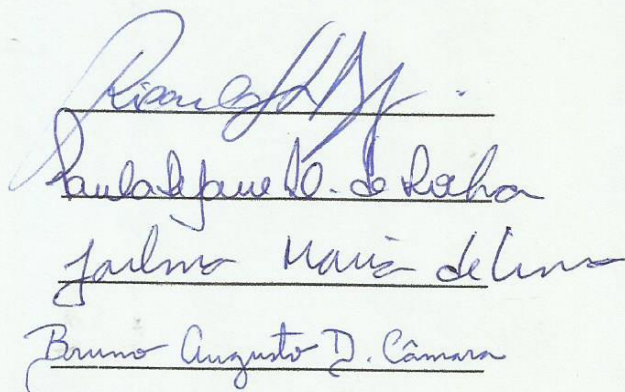 Paula Rejane D. da Rocha
Jailma Maria de Lima
Bruno Augusto D. Câmara